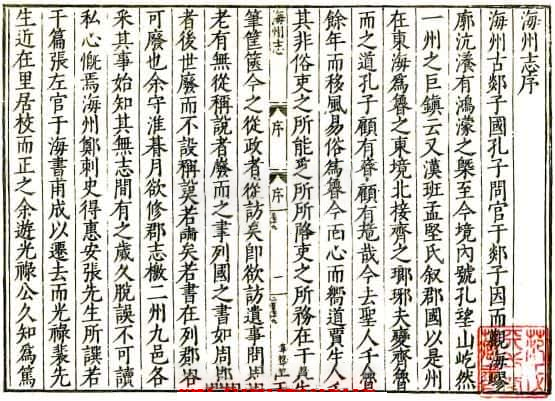 海州志序
海州古郯子國孔子問官于郯子因而觀海
廓沆瀁有鴻濛之槩至今境內號孔望山屹然
一州之巨鎮云又漢班孟堅氏叙郡國以是州
在東海為魯之東境北接齊之瑯琊夫變齊魯
而之道孔子顧有顧有哉今去聖人千
餘年而移風易俗為魯今百心而嚮道賈生人
其非俗吏之所能之所所吏之所務在于
海州志
序
序
一
筆筐篋今之從政者從訪矣即欲訪遺事問周
老有無從稱說者廢而之筆列國之書如周
者後世廢而不設稱謨若肅矣若書在列郡
可廢也余守淮朞月欲修郡志檄二州九邑各
釆其事始知其無志間有之歲久脫誤不可讀
私心慨焉海州鄭刺史得惠安張先生所譔若
干篇張左官于海書甫成以遷去而光祿裴先
生近在里居校而正之余遊光祿公久知為篤